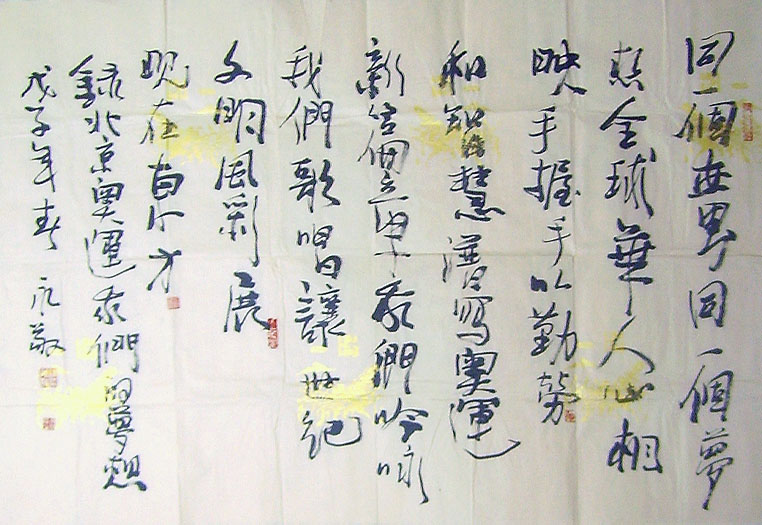 同一個世界同一個夢
想全球華人心相
映手握手以勤勞
和智慧譜寫奧運
新我們吟咏
我們歌唱讓世紀
文明風彩展
現在東方
錄北京奧運我們的夢想
戊子年春 永敬